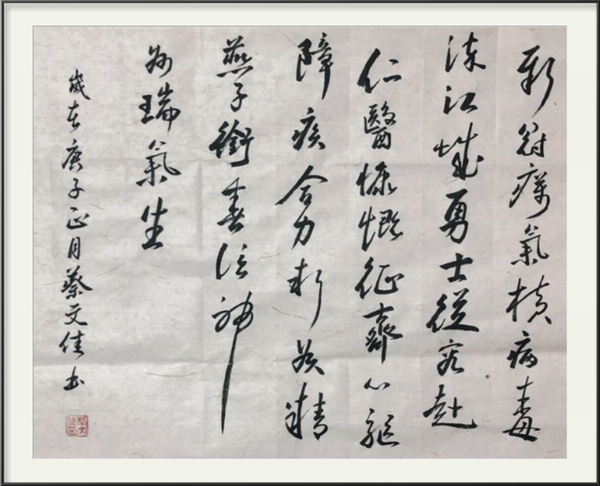 新冠癘氣橫病毒
江城勇士從容赴
仁醫慷慨征齊心驅
障疾合力斬精
燕子銜春信神
州瑞氣生
歲在庚子正月蔡文佳書